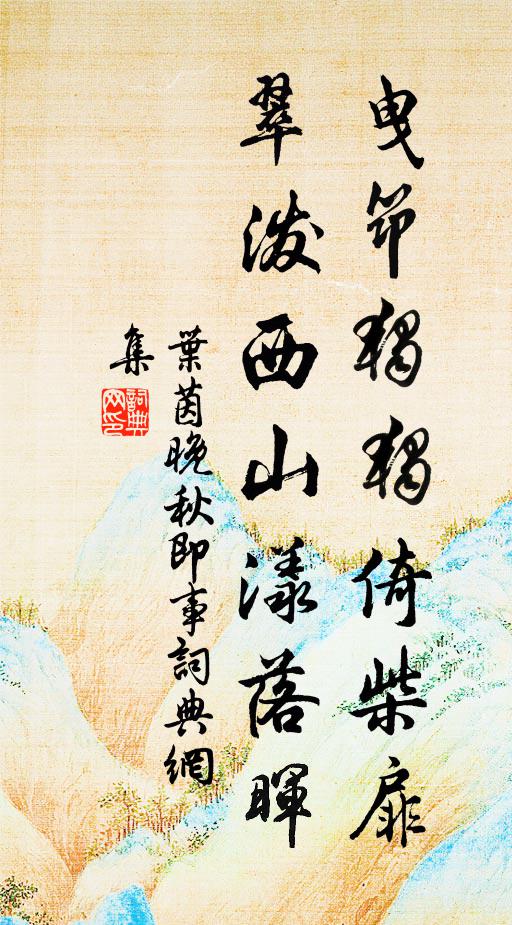 曳筇獨獨倚柴扉
翠潑西山漾落暉
葉茵晚秋即事詞典網
集
詞典
网印